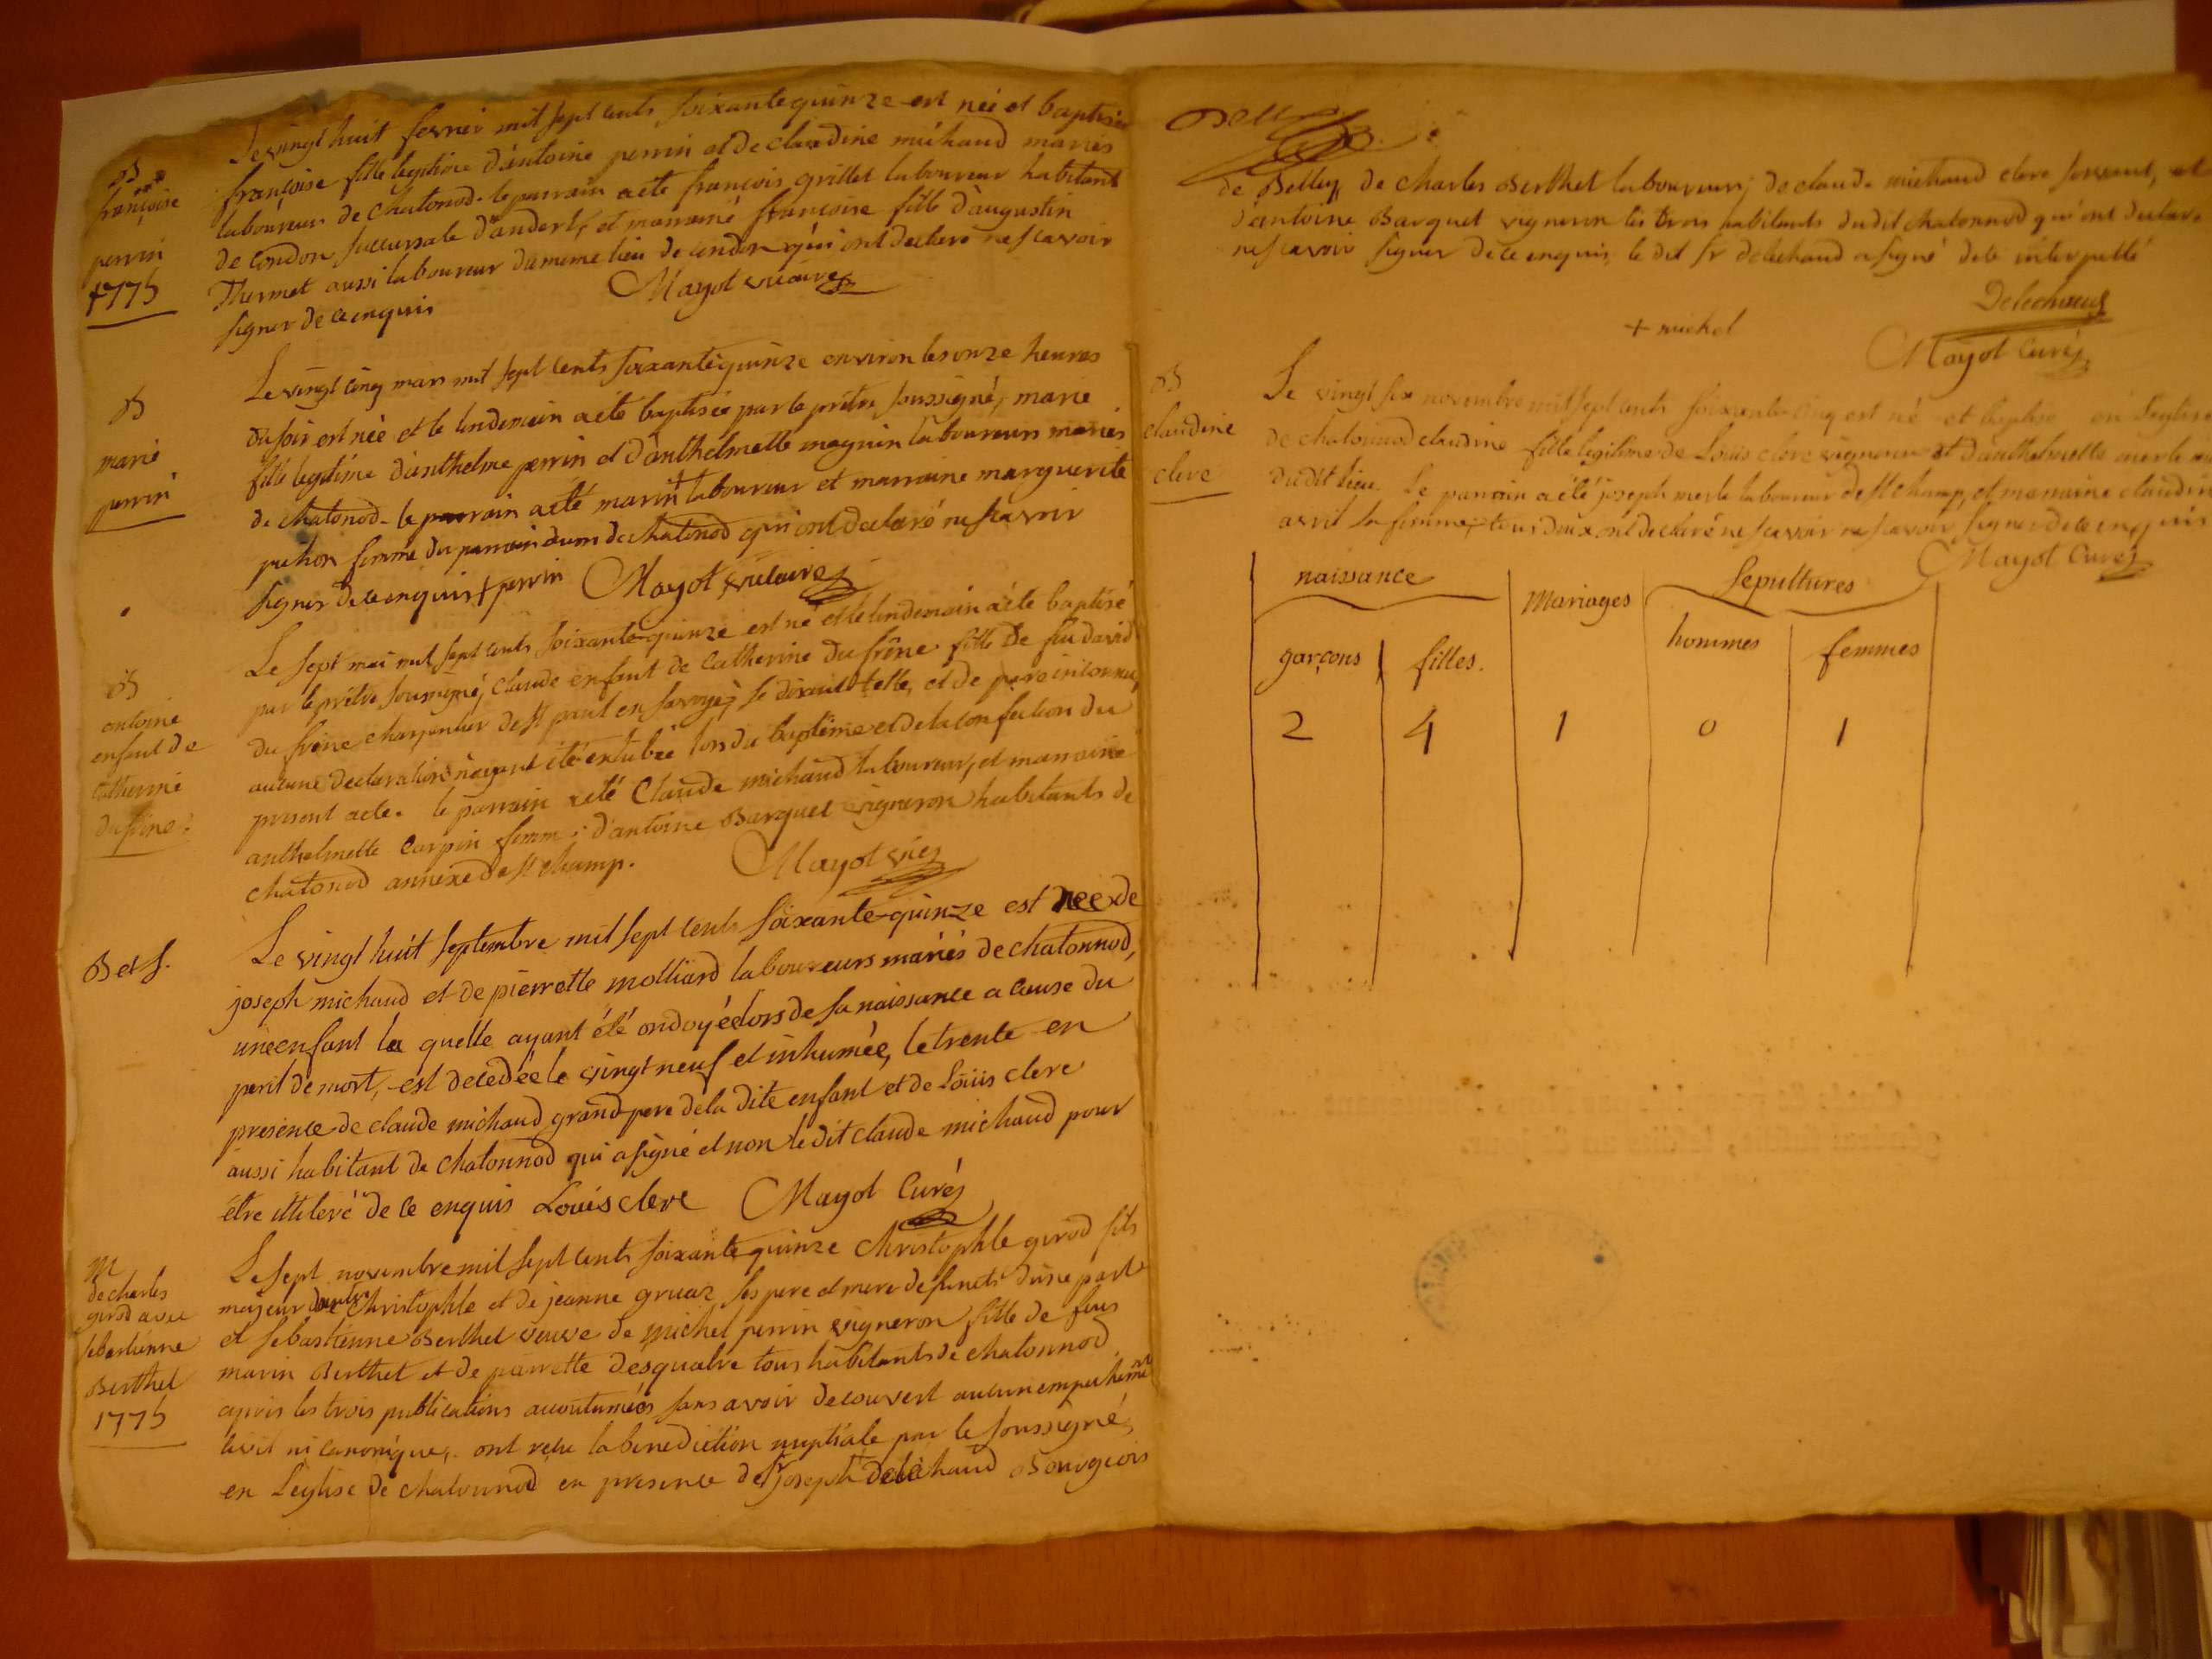 B
françoise
perrin
1775
Le vingt huit fevrier mil sept cents soixante quinze est née et baptisée
françoise fille legitime d'antoine perrin et de claudine michaud mariés
laboureur de chatonod. le parrain a eté françois grillet laboureur habitant
de condon succursale d'andert, et marraine françoise fille d'augustin
Thermet aussi laboureur du meme lieu de condon qui ont declaré ne scavoir
signer de ce enquis Mayot vicaire
B
marie
perrin
Le vingt cinq mars mil sept cents soixante quinze environ les onze heures
du soir est née et le lendemain a eté baptisée par le prêtre soussigné, marie
fille legitime d'anthelme perrin et d'anthelmette maguin laboureurs mariés
de chatonod. le parrain a eté marin + laboureur et marraine marguerite
pichon femme du parrain de chatonod qui ont declaré ne scavoir
signer de ce enquis + perrin Mayot vicaire
B
antoine
enfant de
catherine
du frêne
Le sept mai mil sept cents soixante quinze est né et le lendemain a eté baptisé
par le prêtre soussigné, claude enfant de catherine du frêne fille de feu david
du frêne charpentier de st paul en savoye, se disant telle, et de pere inconnu,
aucune declaration n'ayant été exhibée lors du baptême et de la confection du
present acte. le parrain a eté Claude michaud laboureur, et marraine
anthelmette carpin femme d'antoine Barquet vigneron habitants de
chatonod annexe de st champ. Mayot vic
B et S.
Le vingt huit septembre mil sept cents soixante-quinze est née de
joseph michaud et de pierrette molliard laboureurs mariés de chatonnod,
une enfant la quelle ayant été ondoyée lors de sa naissance a cause du
peril de mort, est decedée le vingt neuf et inhumée, le trente en
presence de claude michaud grand pere de la dite enfant et de Loüis clerc
aussi habitant de chatonnod qui a signé et non le dit claude michaud pour
être illiteré de ce enquis Loüis clerc Mayot Curé
M
de charles
girod avec
sebastienne
Berthet
1775
Le sept novembre mil sept cents soixante quinze Christophle girod fils
majeur d'autre Christophle et de jeanne gruaz ses pere et mere defuncts d'une part
et sebastienne Berthet veuve de michel perrin vigneron fille de feus
marin Berthet et de pierrette desquatre tous habitants de chatonnod
après les trois publications accoutumées sans avoir decouvert aucun empechement
civil ni canonique, ont reçu la benediction nuptiale par le soussigné,
en L'eglise de chatonnod en presence de sr joseph delechaud Bourgeois
de Belley de charles Berthet laboureur, de claude michaud clerc servant, et
d'antoine Barquet vigneron les trois habitants dudit chatonnod qui ont declaré
ne scavoir signer de ce enquis, le dit sr delechaud a signé de ce interpellé
Delechaud
+ michel
Mayot Curé
B
claudine
clerc
Le vingt six novembre mil sept cents soixante-cinq est né et baptisé en L'eglise
de chatonnod claudine fille legitime de Loüis clerc vigneron et d'anthelmette merle
dudit lieu. Le parrain a été joseph merle laboureur de st champ, et marraine claudine
avril sa femme, tous deux ont declaré ne scavoir ne scavoir signer de ce enquis
Mayot Curé
naissance Mariages Sepultures
garçons filles. hommes femmes
2 4 1 0 1